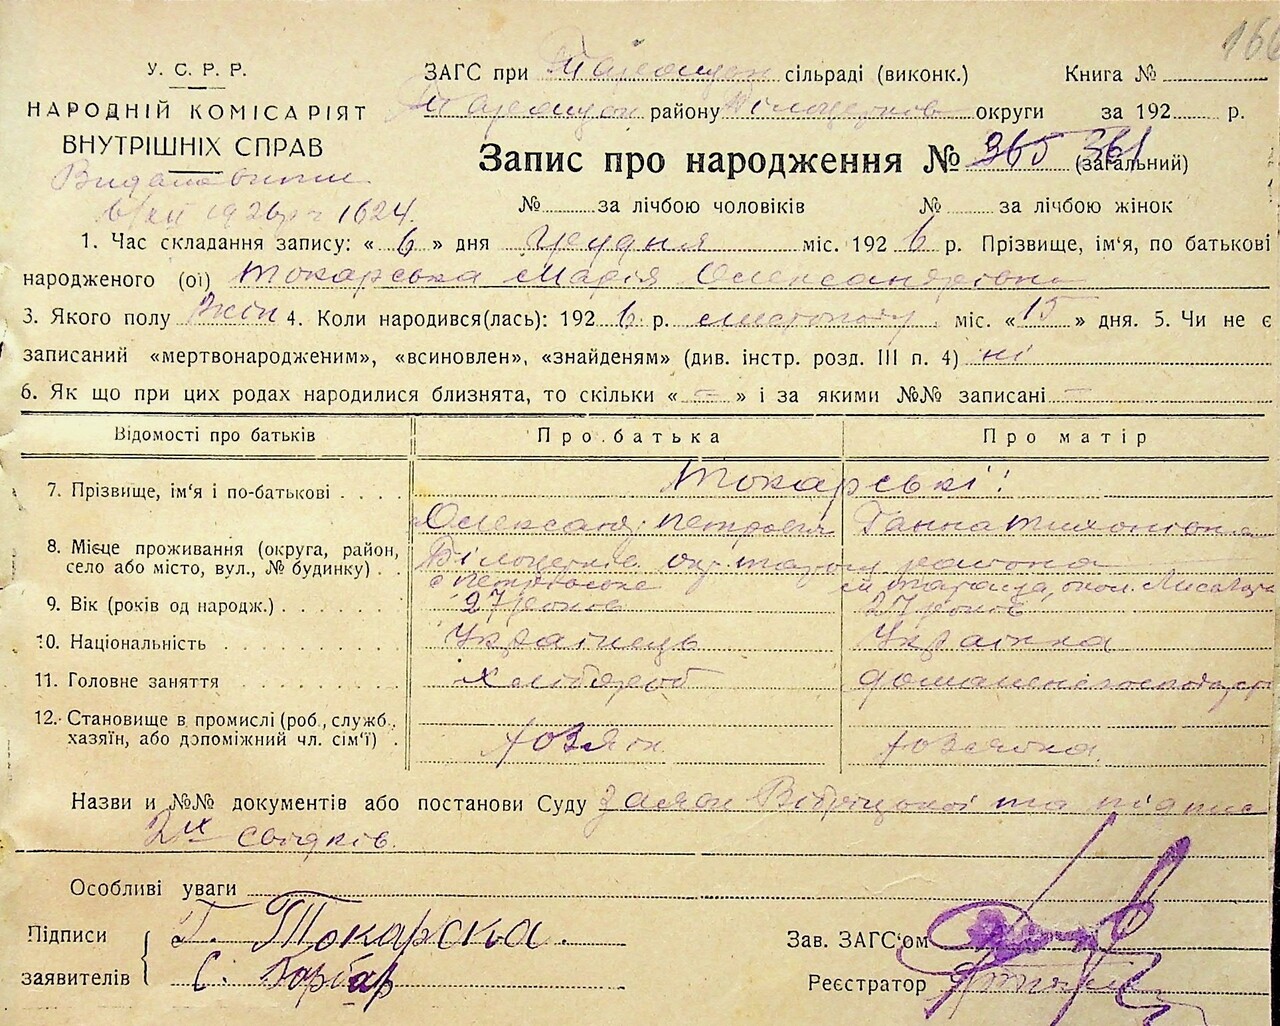 166
У. С. Р. Р.
НАРОДНІЙ КОМІСАРІЯТ
ВНУТРІШНІХ СПРАВ
ЗАГС при сільраді (виконк.) Книга №
району Білоцерков округи за 192 р.
Запис про народження № 365 361 (загальний)
Видана
6/XII 1926 р. 1624.
№ за лічбою чоловіків № за лічбою жінок
1. Час складання запису: « 6 » дня Грудня міс. 192 6 р. Прізвище, ім'я, по батькові
народженого (ої) Токарська Марія Олександрівна
3. Якого полу Жін 4. Коли народився(лась): 192 6 р. листопаду міс. « 15 » дня. 5. Чи не є
записаний «мертвонародженим», «всиновлен», «знайденям» (див. інстр. розд. III п. 4) ні
6. Як що при цих родах народилися близнята, то скільки « — » і за якими №№ записані —
Відомості про батьків Про батька Про матір
7. Прізвище, ім'я і по-батькові Токарські:
Олександ. Петрович Ганна Тихонівна
8. Місце проживання (округа, район,
село або місто, вул., № будинку) Білоцерків. окр. района
9. Вік (років од народж.) 27 років 27 років
10. Національність Українець Українка
11. Головне заняття Хлібороб
12. Становище в промислі (роб., служб.,
хазяїн, або допоміжний чл. сім'ї) Хозяін Хозяйка.
Назви и №№ документів або постанови Суду та підпис
2х свідків.
Особливі уваги
Підписи Г. Токарска.
заявителів С. Борбар
Зав. ЗАГС'ом
Реєстратор